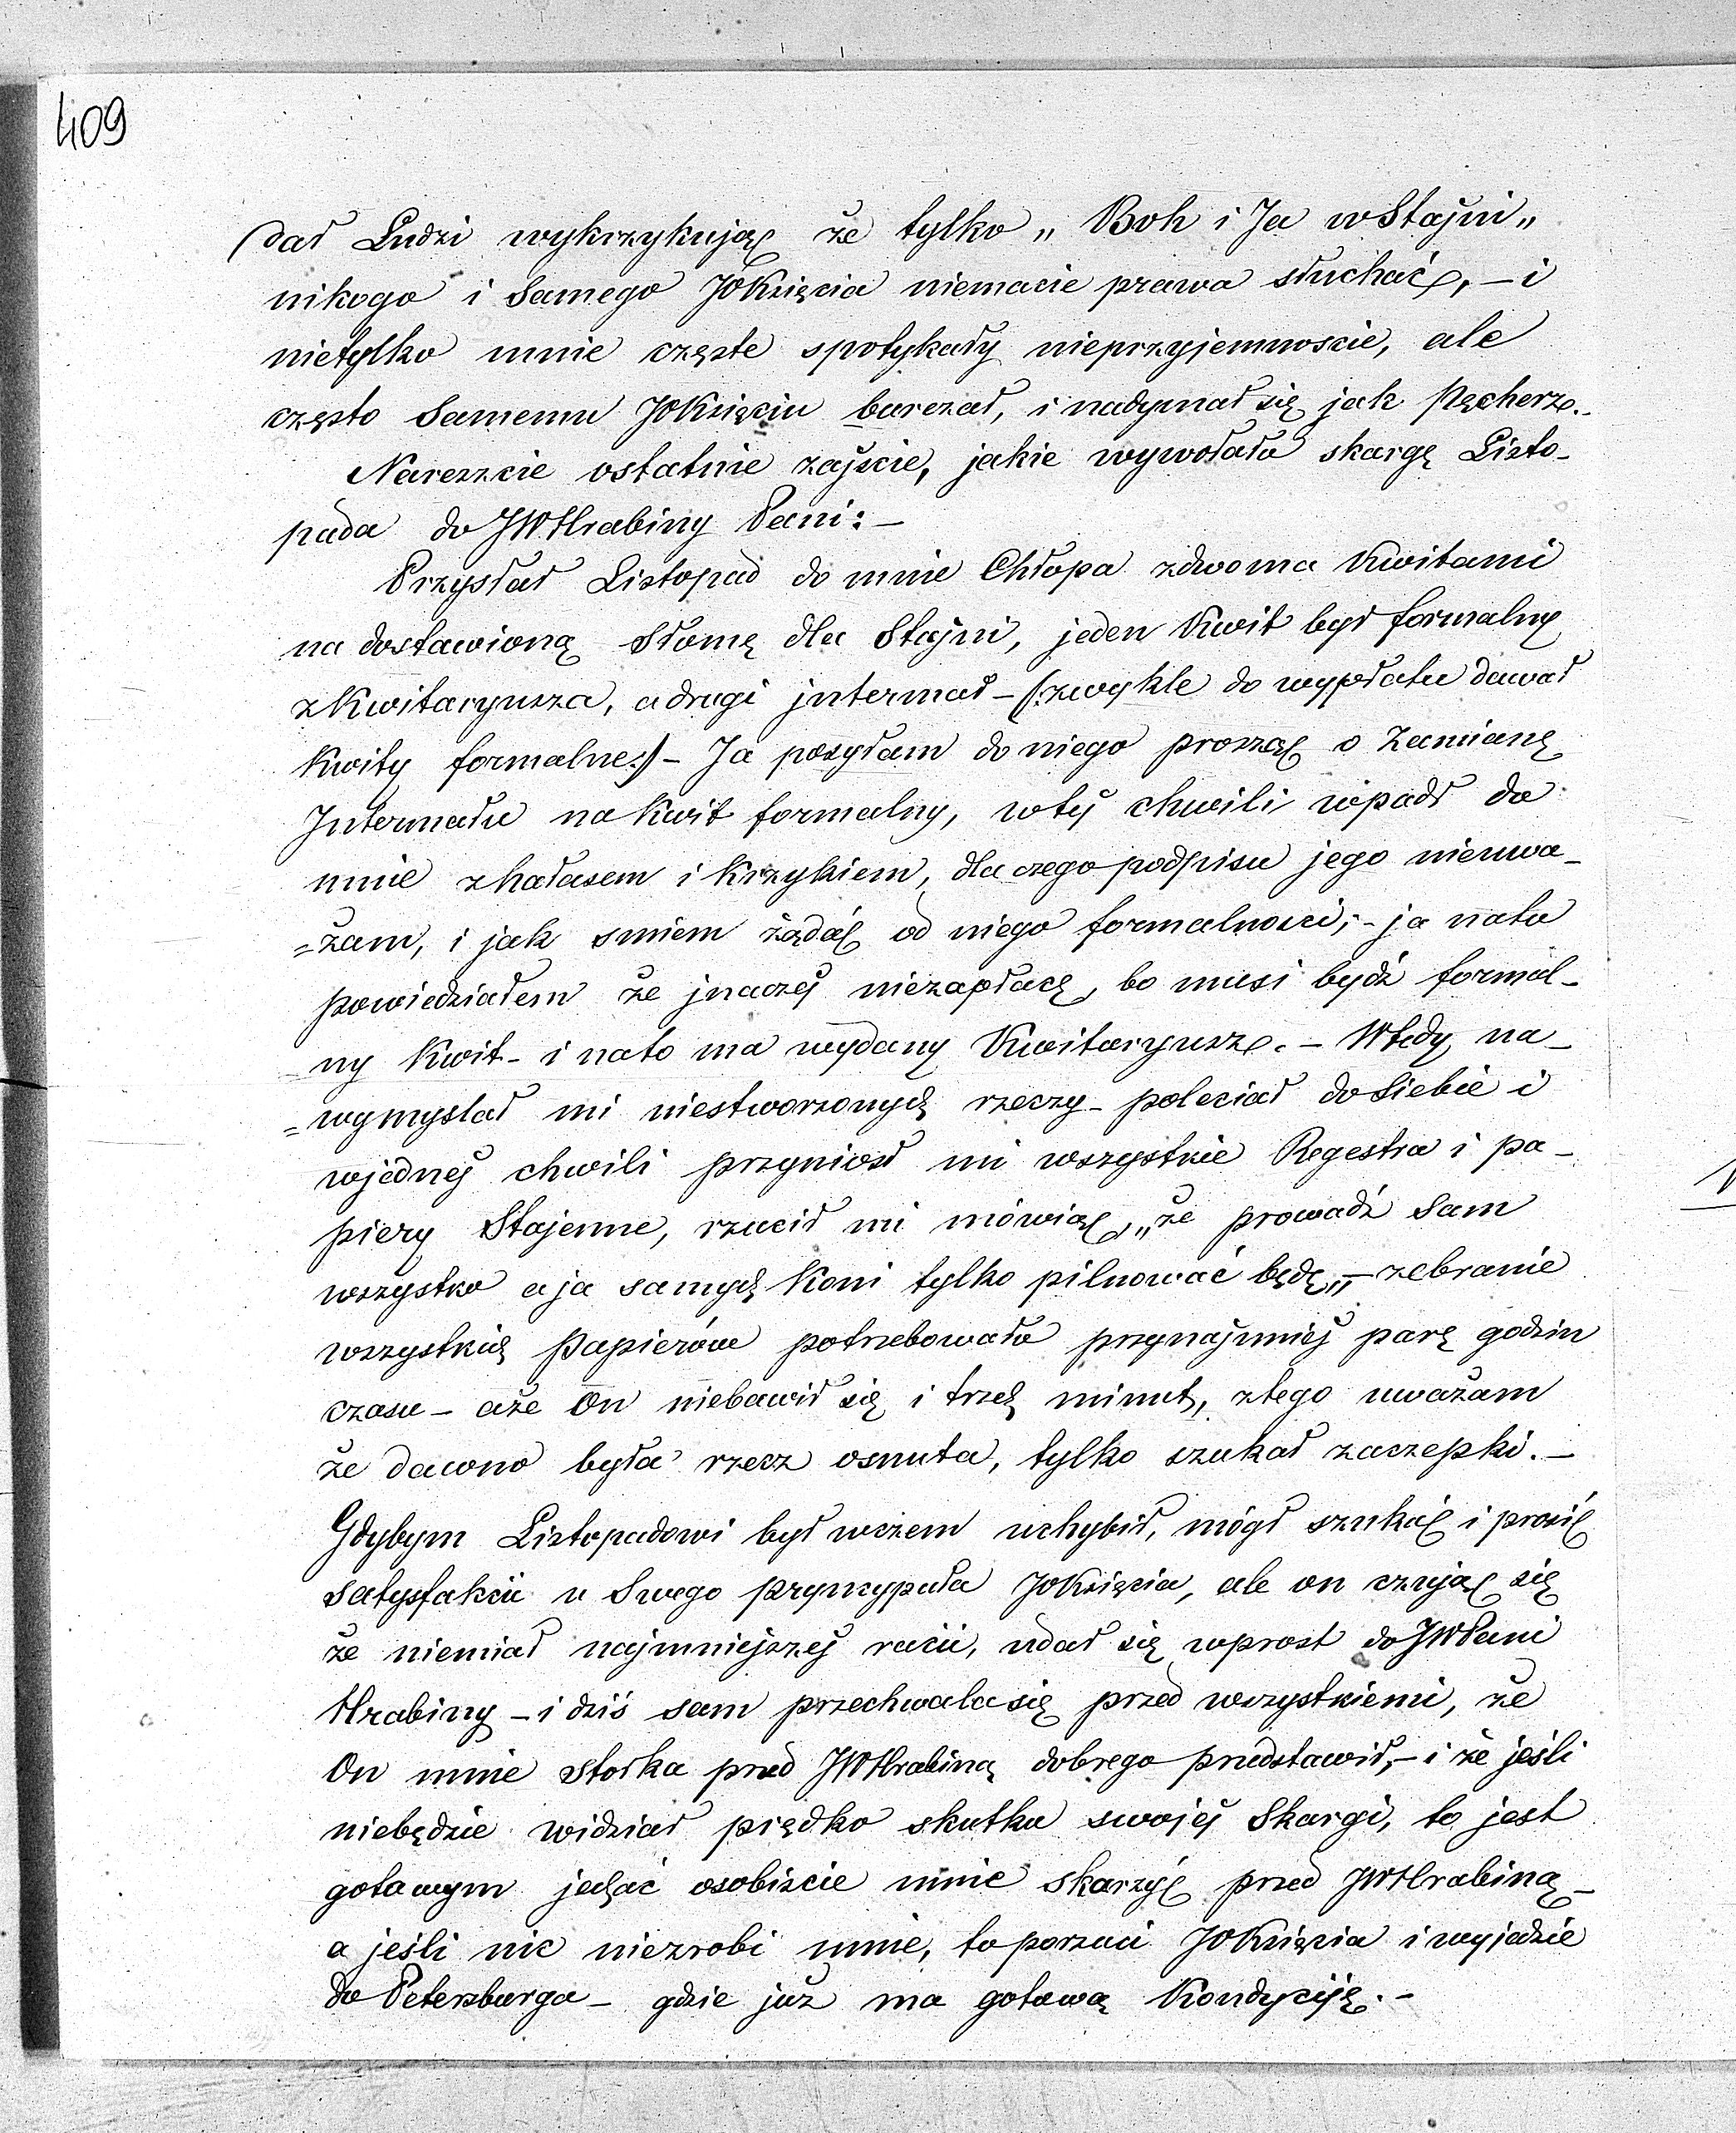 409
dał Ludzi wykrzykując że tylko „Boh i Ja w Stajni„
nikogo i Samego JOKsięcia niemacie prawa słuchać, – i
nietylko mnie częste spotykały nieprzyjemnoscie, ale
często Samemu JOKsięciu burczał, i nadymał się jak Pęcherz.
Nareszcie ostatnie zajście, jakie wywołało skargę Listo-
pada do JWHrabiny Pani: –
Przysłał Listopad do mnie Chłopa zdwoma Kwitami
na dostawioną Słomę dla Stajni, jeden Kwit był formalny
zKwitaryusza, a drugi jntermał – (:zwykle do wypłatu dawał
Kwity formalne:) – Ja posyłam do niego prosząc o Zamianę
Intermału na Kwit formalny, w téj chwili wpadł do
mnie z hałasem i Krzykiem, dla czego podpisu jego nieuwa-
=żam, i jak smiem żądać od niego formalności; – ja nato
powiedziałem że jnaczéj niezapłacę, bo musi bydź formal-
ny Kwit – i nato ma wydany Kwitaryusz. – Wtedy na-
=wymyslał mi niestworzonych rzeczy – poleciał do Siebie i
wjednéj chwili przyniosł mi wszystkie Regestra i pa-
piery Stajenne, rzucił mi mówiąc, „że prowadź Sam
wszystko a ja samych Koni tylko pilnować będę„ – zebranie
wszystkich Papierów potrzebowało przynajmniéj parę godzin
czasu – aże On niebawił się i trzech minut, ztego uważam
że dawno była rzecz osnuta, tylko szukał zaczepki. –
Gdybym Listopadowi był wczem uchybił, mógł szukać i prosić
satysfakcii u Swego pryncypała JOKsięcia, ale on czując się
że niemiał najmniejszéj racii, udał się wprost do JWPani
Hrabiny – i dziś sam przechwala się przed wszystkiemi, że
On mnie stołka przed JWHrabiną dobrego przedstawił, – i że jeśli
niebędzie widział prędko skutku swojéj Skargi, to jest
gotowym jechać osobiscie mnie Skarzyć przed JWHrabiną –
a jeśli nic niezrobi mnie, to porzuci JOKsięcia i wyjedzie
do Petersburga – gdzie już ma gotową Kondycyję. –